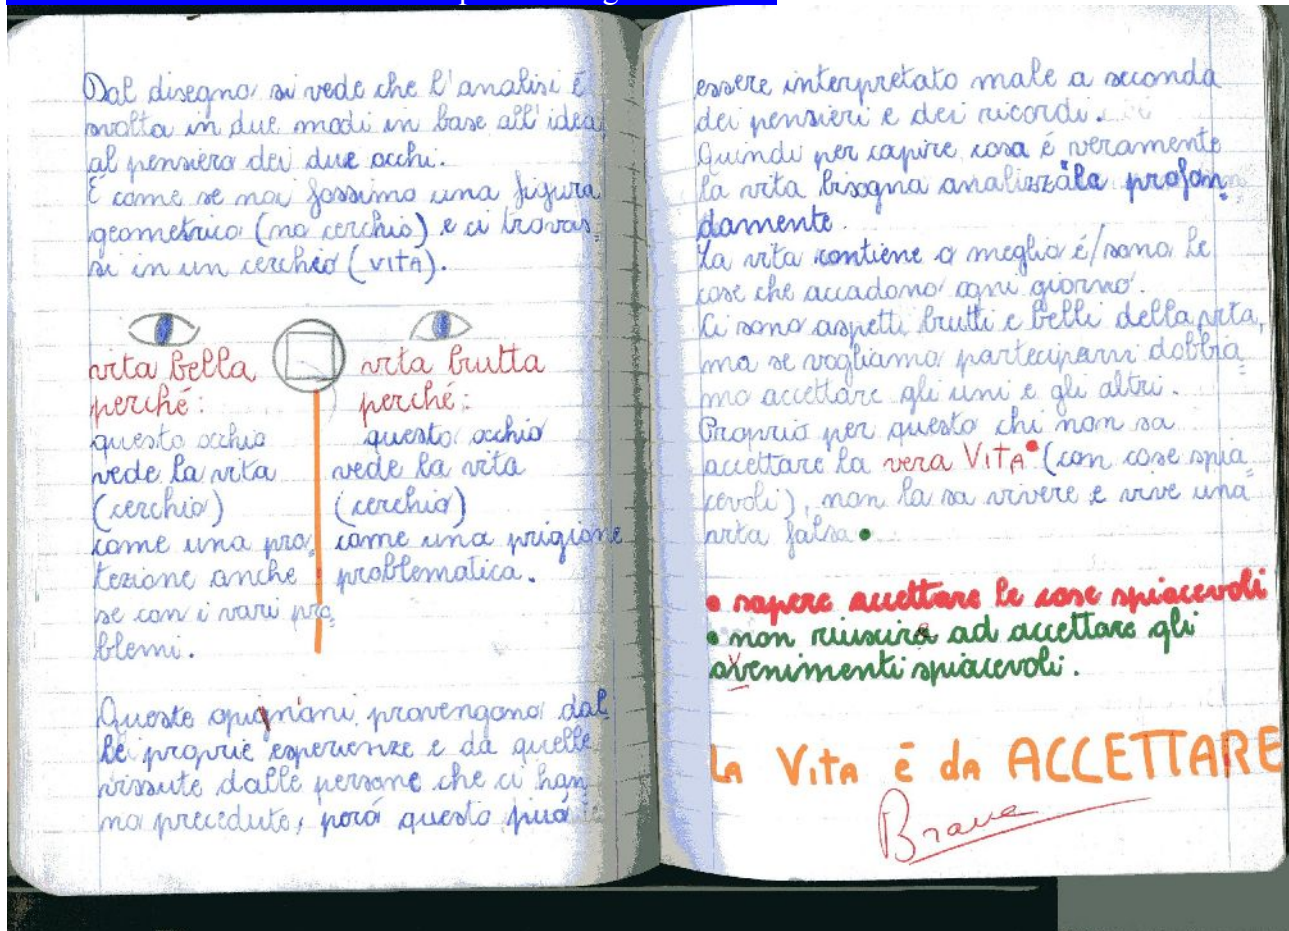 Dal disegno si vede che l'analisi é
svolta in due modi in base all'idea,
al pensiero dei due occhi.
É come se noi fossimo una figura
geometrica (no cerchio) e ci trovas=
si in un cerchio (VITA).
vita bella
perché:
questo occhio
vede la vita
(cerchio)
come una pro=
tezione anche
se con i vari pro=
blemi.
vita brutta
perché:
questo occhio
vede la vita
(cerchio)
come una prigione
problematica.
Queste opignioni provengono dal=
le proprie esperienze e da quelle
vissute dalle persone che ci han=
no preceduto, peró questo puó
essere interpretato male a seconda
dei pensieri e dei ricordi.
Quindi per capire cosa é veramente
la vita bisogna analizzala profon=
damente.
La vita contiene o meglio é/sono le
cose che accadono ogni giorno.
Ci sono aspetti brutti e belli della vita,
ma se vogliamo parteciparvi dobbia=
mo accettare gli uni e gli altri.
Proprio per questo chi non sa
accettare la vera VITA• (con cose spia=
cevoli), non la sa vivere e vive una
vita falsa •
• sapere accettare le cose spiacevoli
• non riuscire ad accettare gli
avvenimenti spiacevoli.
LA VITA é da ACCETTARE
Brava